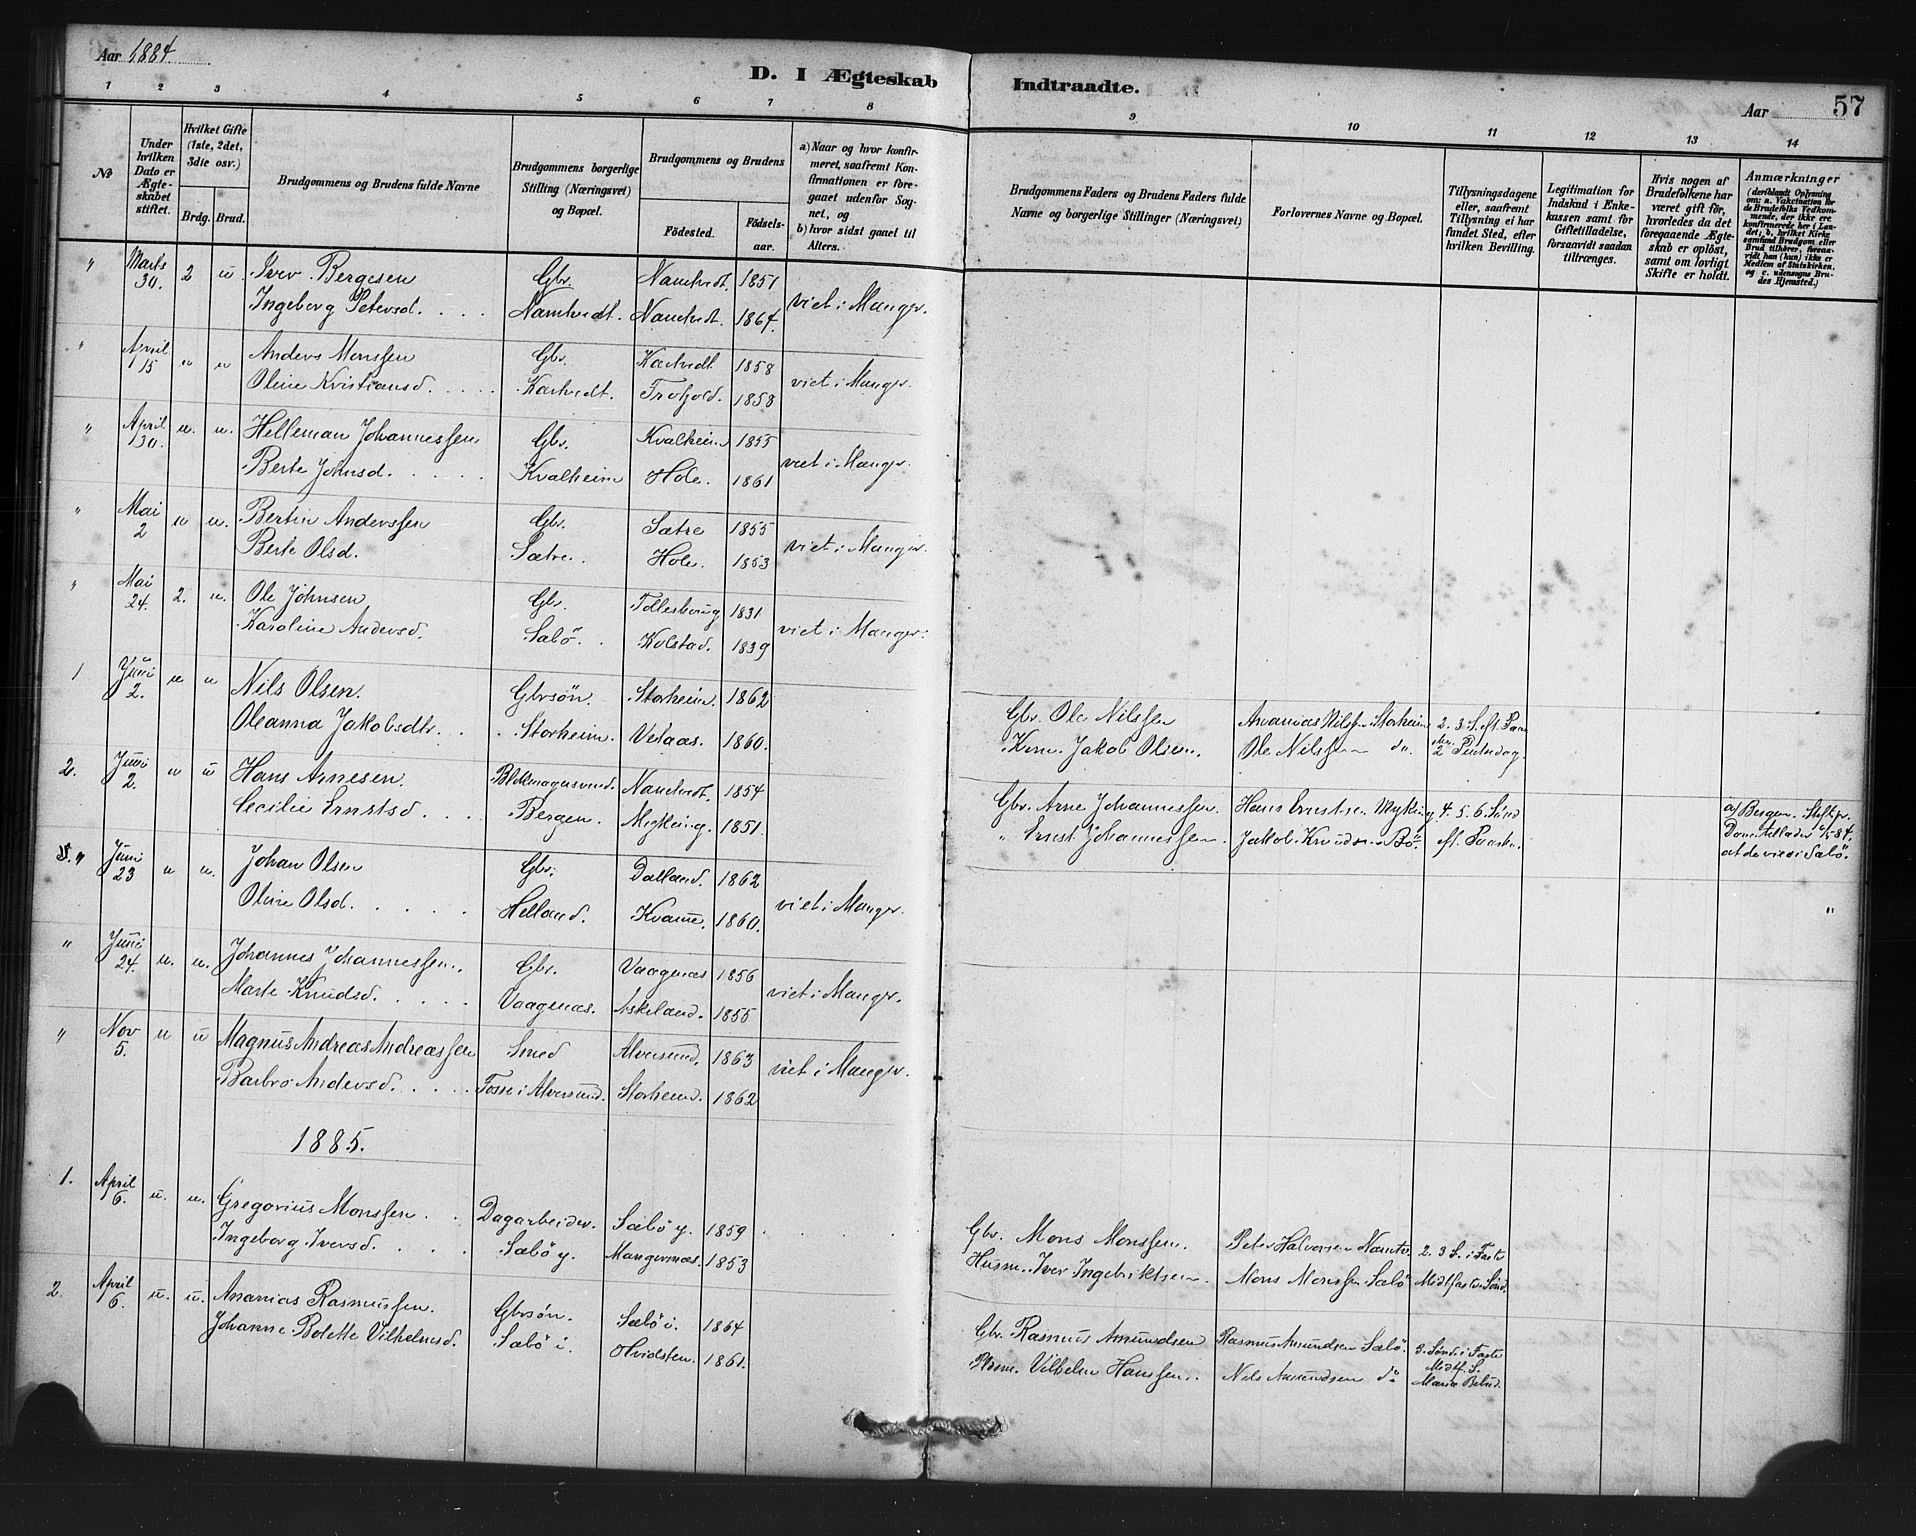 Aar 1884.
D. I Ægteskab Indtraadte.
Aar
57
1 2 3 4 5 6 7 8 9 10 11 12 13 14
No
Under hvilken Dato er Ægteskabet stiftet.
Hvilket Gifte (1ste, 2det, 3die osv.)
Brdg. Brud.
Brudgommens og Brudens fulde Navne
Brudgommens borgerlige Stilling (Næringsvei) og Bopæl.
Brudgommens og Brudens
Födested.
Födselsaar.
a) Naar og hvor konfirmeret, saafremt Konfirmationen er foregaaet udenfor Sognet, og
b) hvor sidst gaaet til Alters.
Brudgommens Faders og Brudens Faders fulde Navne og borgerlige Stillinger (Næringsvei)
Forlovernes Navne og Bopæl.
Tillysningsdagene eller, saafremt Tillysning ei har fundet Sted, efter hvilken Bevilling.
Legitimation for Indskud i Enkekassen samt for Giftetilladelse, forsaavidt saadan tiltrænges.
Hvis nogen af Brudefolkene har været gift för, hvorledes da det foregaaende Ægteskab er oplöst, samt om lovligt Skifte er holdt.
Anmærkninger
(deriblandt Oplysning om: a. Vakcination for de Brudefolks Vedkommende, der ikke ere konfirmerede her i Landet; b. hvilket Kirkesamfund Brudgom eller Brud tilhörer, forsaavidt han (hun) ikke er Medlem af Statskirken, og c. udensogns Brudes Hjemsted.)
" Marts 30. 2 u. Iver Bergesen Gbr. Namtvedt. 1851 viet i Manger.
Ingeborg Petersd. Namtvedt. Namtvedt. 1864.
" April 15 u u Anders Monssen Gbr. Kartvedt 1858 viet i Manger.
Oline Kristiansd. Kartvedt. 1858
" April 30. u. u. Helleman Johannessen Gbr. Kvalheim 1855 viet i Manger.
Berte Johnsd. Kvalheim Hole. 1861
" Mai 2 u u. Bertin Anderssen Gbr. Sætre 1855 viet i Manger.
Berte Olsd. Sætre. Hole. 1853
" Mai 24. 2. u. Ole Johnsen Gbr. 1831 viet i Manger.
Karoline Andersd. Sæbö. Kolstad. 1839
1 Juni 2. u u Nils Olsen. Gbrsön. Storheim. 1862 Gbr. Ole Nilssen Ananias Nilsen Storheim 2. 3. S. eft. Paaske
Oleanna Jakobsdtr. Storheim. Vetaas. 1860. Jakob Olsen. Ole Nilssen do. 2 Pintsedag.
2. Juni 2. u u Hans Arnesen. Namtvedt. 1854 Gbr. Arne Johannessen. Hans Ernstsen Myking 4. 5. 6. Sönd
Cecilie Ernstsd. Bergen. Myking. 1851. " Ernst Johannessen. Jakob Knudsen Bö. eft. Paaske.
a) Bergen. Stiftspr.
at de vies i Sæbö.
" Juni 23 u u. Johan Olsen Gbr. Dalland. 1862 viet i Manger. "
Oline Olsd. Helland. Kvamme. 1860.
" Juni 24. u. u. Johannes Johannessen. Gbr. Vaagenæs 1856 viet i Manger.
Marte Knudsd. Vaagenæs. Askeland. 1855
" Nov 5. u u Magnus Andreas Andreassen Smed Alversund. 1863 viet i Manger.
Barbro Andersd. Fosse i Alversund. Storheim. 1862
1885.
1. April 6. u. u. Gregorius Monssen. Dagarbeider. Sæbö y. 1859 Gbr. Mons Monssen. Peter Halvorsen Namtv. 2. 3 S. i Faste
Ingeborg Iversd. Sæbö y. Mangernæs. 1853 Husm. Iver Ingebriktsen. Mons Monssen Sæbö Midtfaste Sönd.
2. April 6. u. u. Ananias Rasmussen. Gbrsön. Sæbö i. 1864 Gbr. Rasmus Amundsen Rasmus Amundsen Sæbö. 3. Sönd. i Faste
Johanne Bolette Vilhelmsd. Sæbö i. Hvidsten. 1861. Vilhelm Hanssen. Nels Amundsen do Midtf. S. Mariæ Bebud.